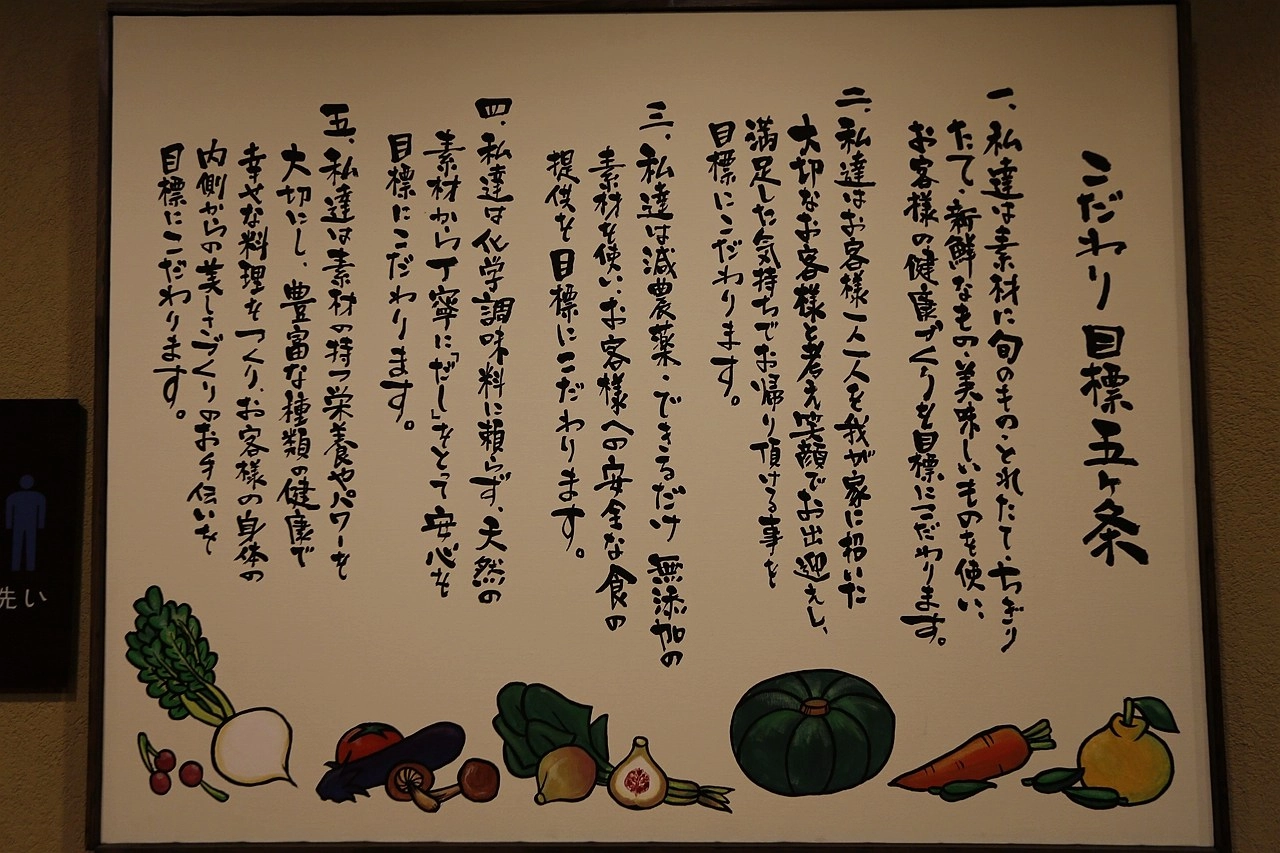 こだわり目標五ヶ条
一、私達は素材に旬のもの・とれたて・ちぎり
たて・新鮮なもの・美味しいものを使い、
お客様の健康づくりを目標にこだわります。
二、私達はお客様一人一人を我が家に招いた
大切なお客様と考え笑顔でお出迎えし、
満足した気持ちでお帰り頂ける事を
目標にこだわります。
三、私達は減農薬・できるだけ無添加の
素材を使い、お客様への安全な食の
提供を目標にこだわります。
四、私達は化学調味料に頼らず、天然の
素材から丁寧に「だし」をとって安心を
目標にこだわります。
五、私達は素材の持つ栄養やパワーを
大切にし、豊富な種類の健康で
幸せな料理をつくり、お客様の身体の
内側からの美しさづくりのお手伝いを
目標にこだわります。
先い